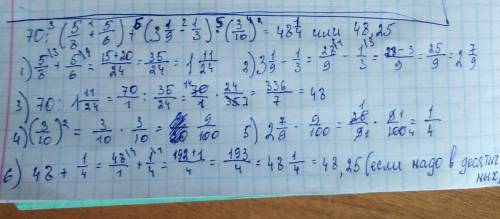 70:(5/8+5/6)+(3 1/9-1/3)·(3/10)²=48 1/4 или 48,25
1) 5/8+5/6=15+20/24=35/24=1 11/24 2) 3 1/9-1/3=28/9-1/3=28-3/9=25/9=2 7/9
3) 70:1 11/24=70/1:35/24=70/1·24/35=336/7=48
4) (3/10)²=3/10·3/10=9/100 5) 2 7/9·9/100=25/9·9/100=1/4
6) 48+1/4=48/1+1/4=192+1/4=193/4=48 1/4=48,25 (если надо в десятич
ных,